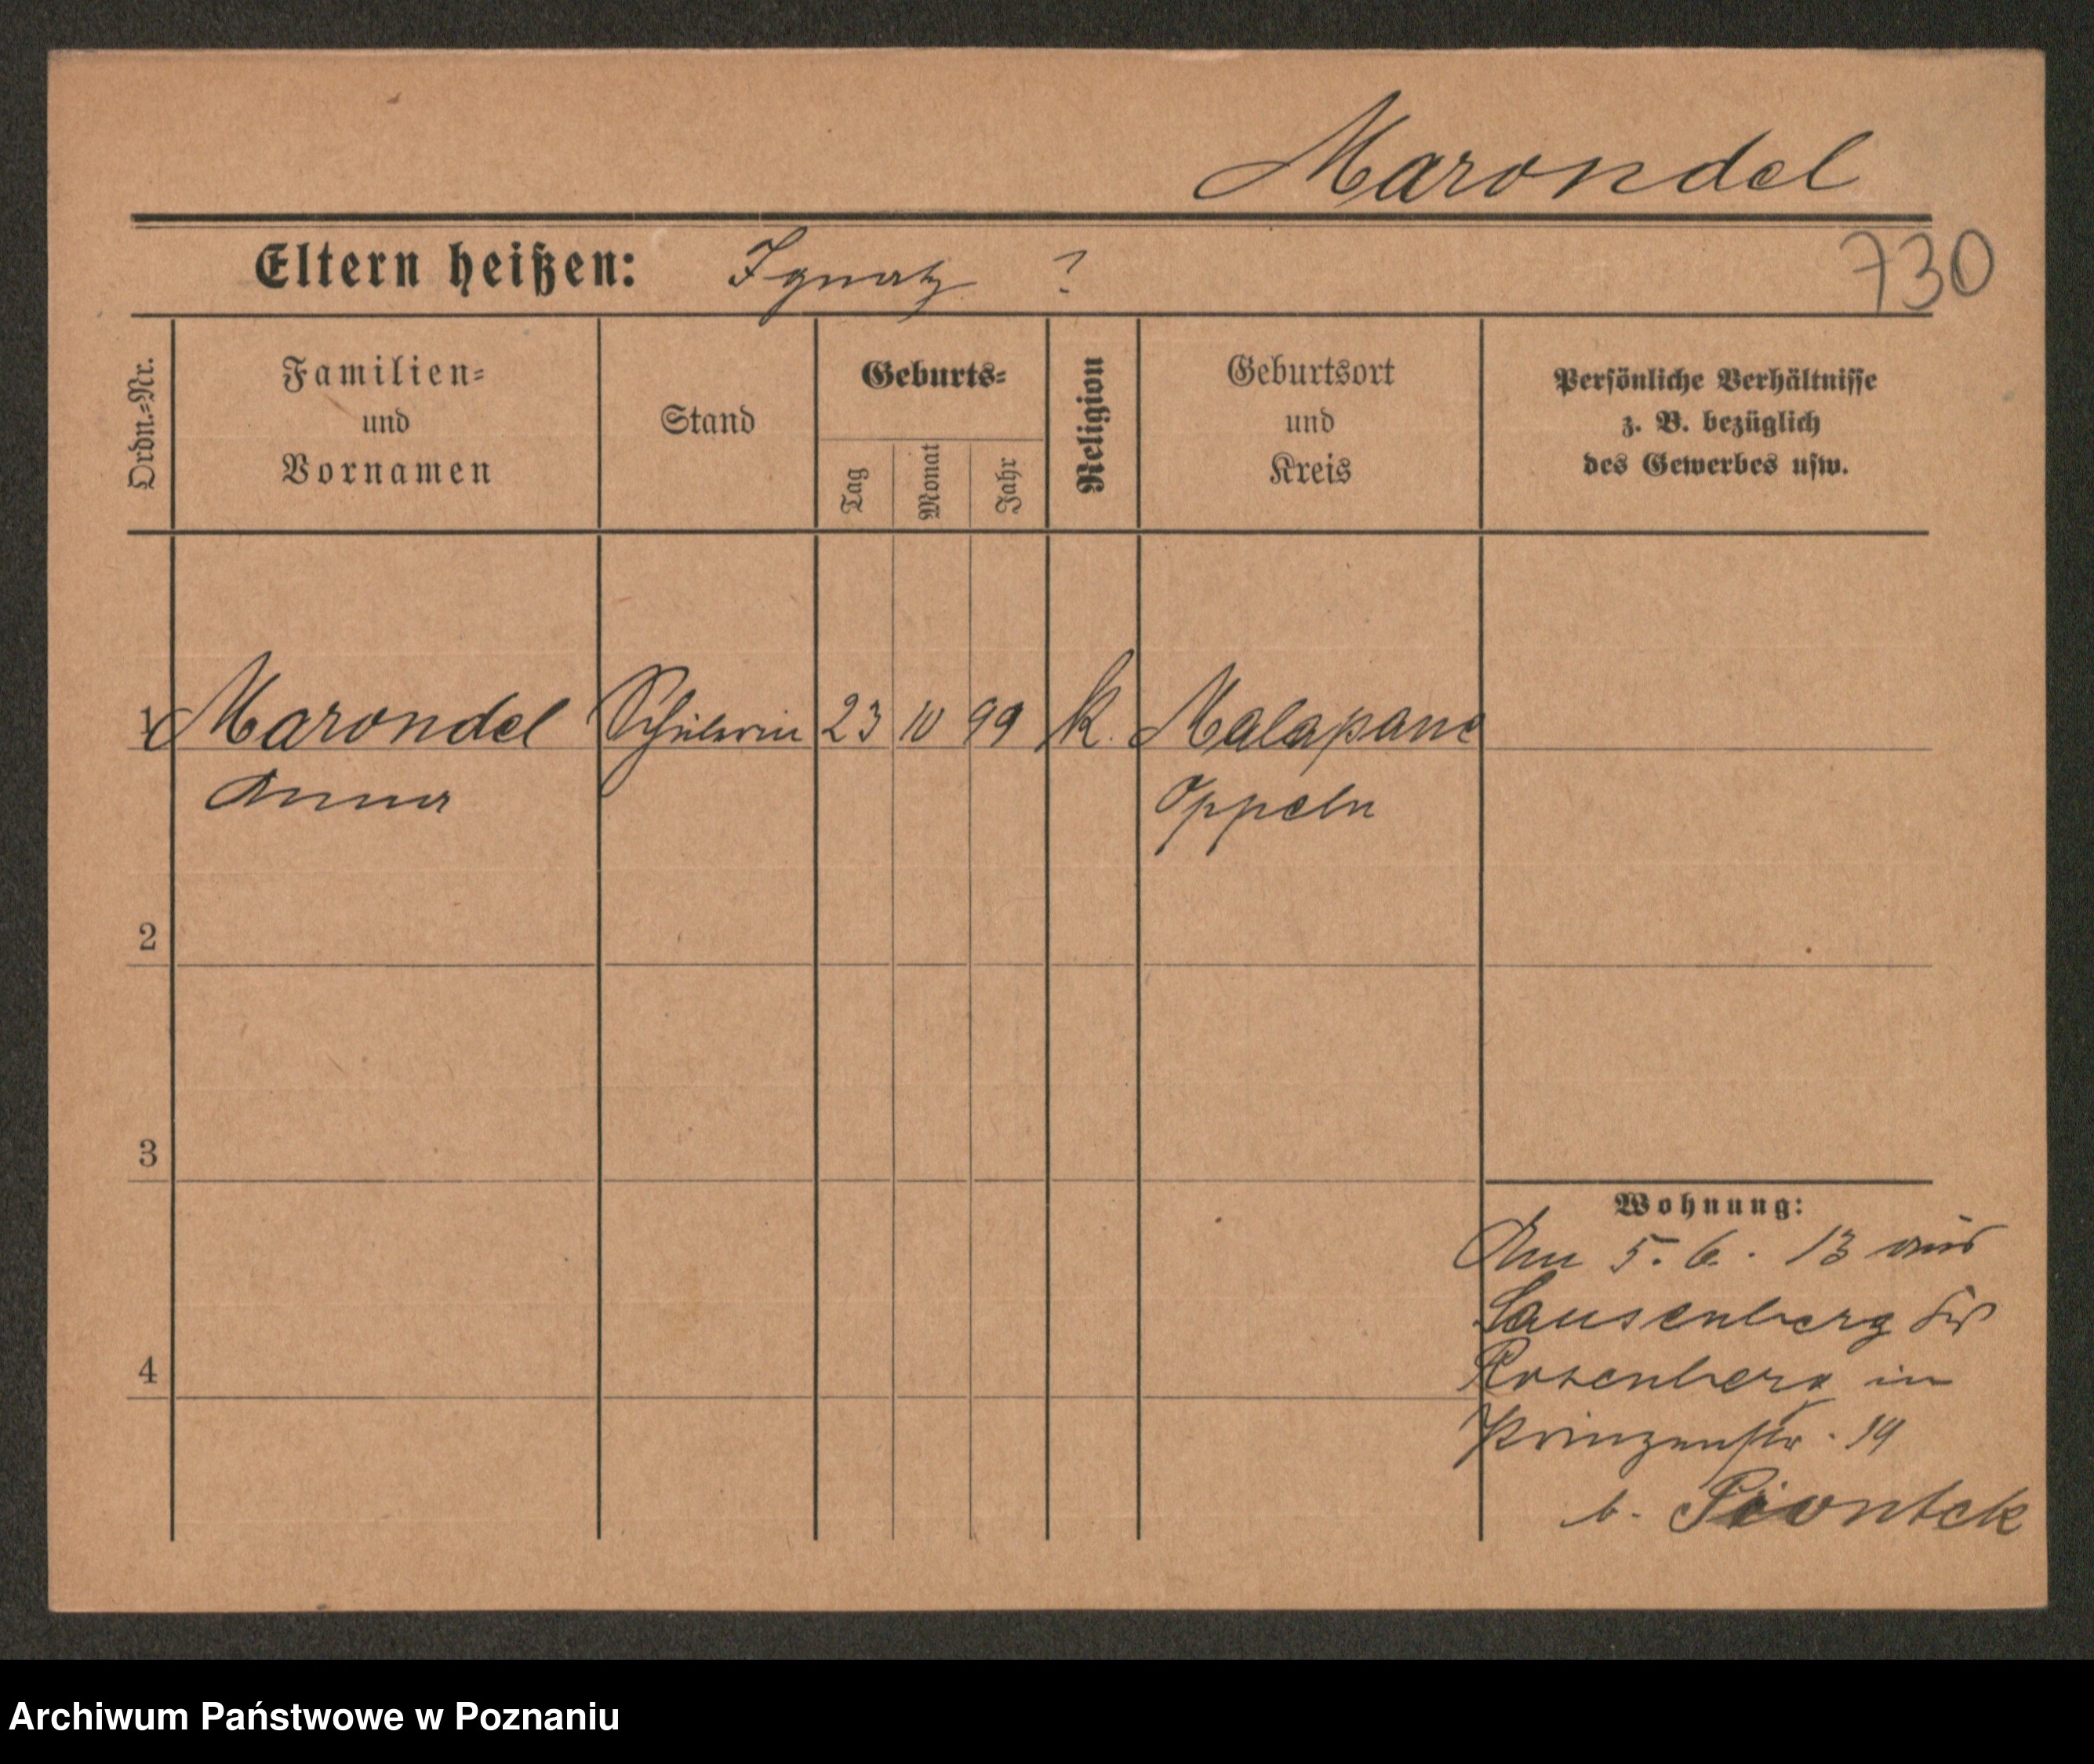 Marondel
Eltern heißen: Ignatz ?
730
Ordn.=Nr.
Familien=
und
Vornamen
Stand
Geburts=
Tag
Monat
Jahr
Religion
Geburtsort
und
Kreis
Persönliche Verhältnisse
z. B. bezüglich
des Gewerbes usw.
1 Marondel Schülerin 23 10 99 k. Malapane
Anna Oppeln
2
3
4
Wohnung:
Am 5. 6. 13 aus
Lausenberg
Rosenberg in
Prinzenstr. 19
b. Piontek
Archiwum Państwowe w Poznaniu